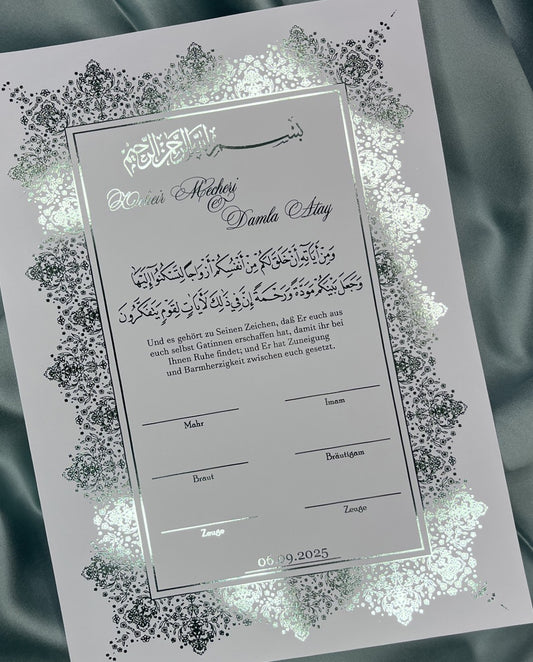 بسم الله الرحمن الرحيم
Mecheri
&
Damla Atay
وَمِنْ آيَاتِهِ أَنْ خَلَقَ لَكُم مِّنْ أَنفُسِكُمْ أَزْوَاجًا لِّتَسْكُنُوا إِلَيْهَا
وَجَعَلَ بَيْنَكُم مَّوَدَّةً وَرَحْمَةً إِنَّ فِي ذَٰلِكَ لَآيَاتٍ لِّقَوْمٍ يَتَفَكَّرُونَ
Und es gehört zu Seinen Zeichen, daß Er euch aus
euch selbst Gatinnen erschaffen hat, damit ihr bei
Ihnen Ruhe findet; und Er hat Zuneigung
und Barmherzigkeit zwischen euch gesetzt.
Mahr
Imam
Braut
Bräutigam
Zeuge
Zeuge
06.09.2025